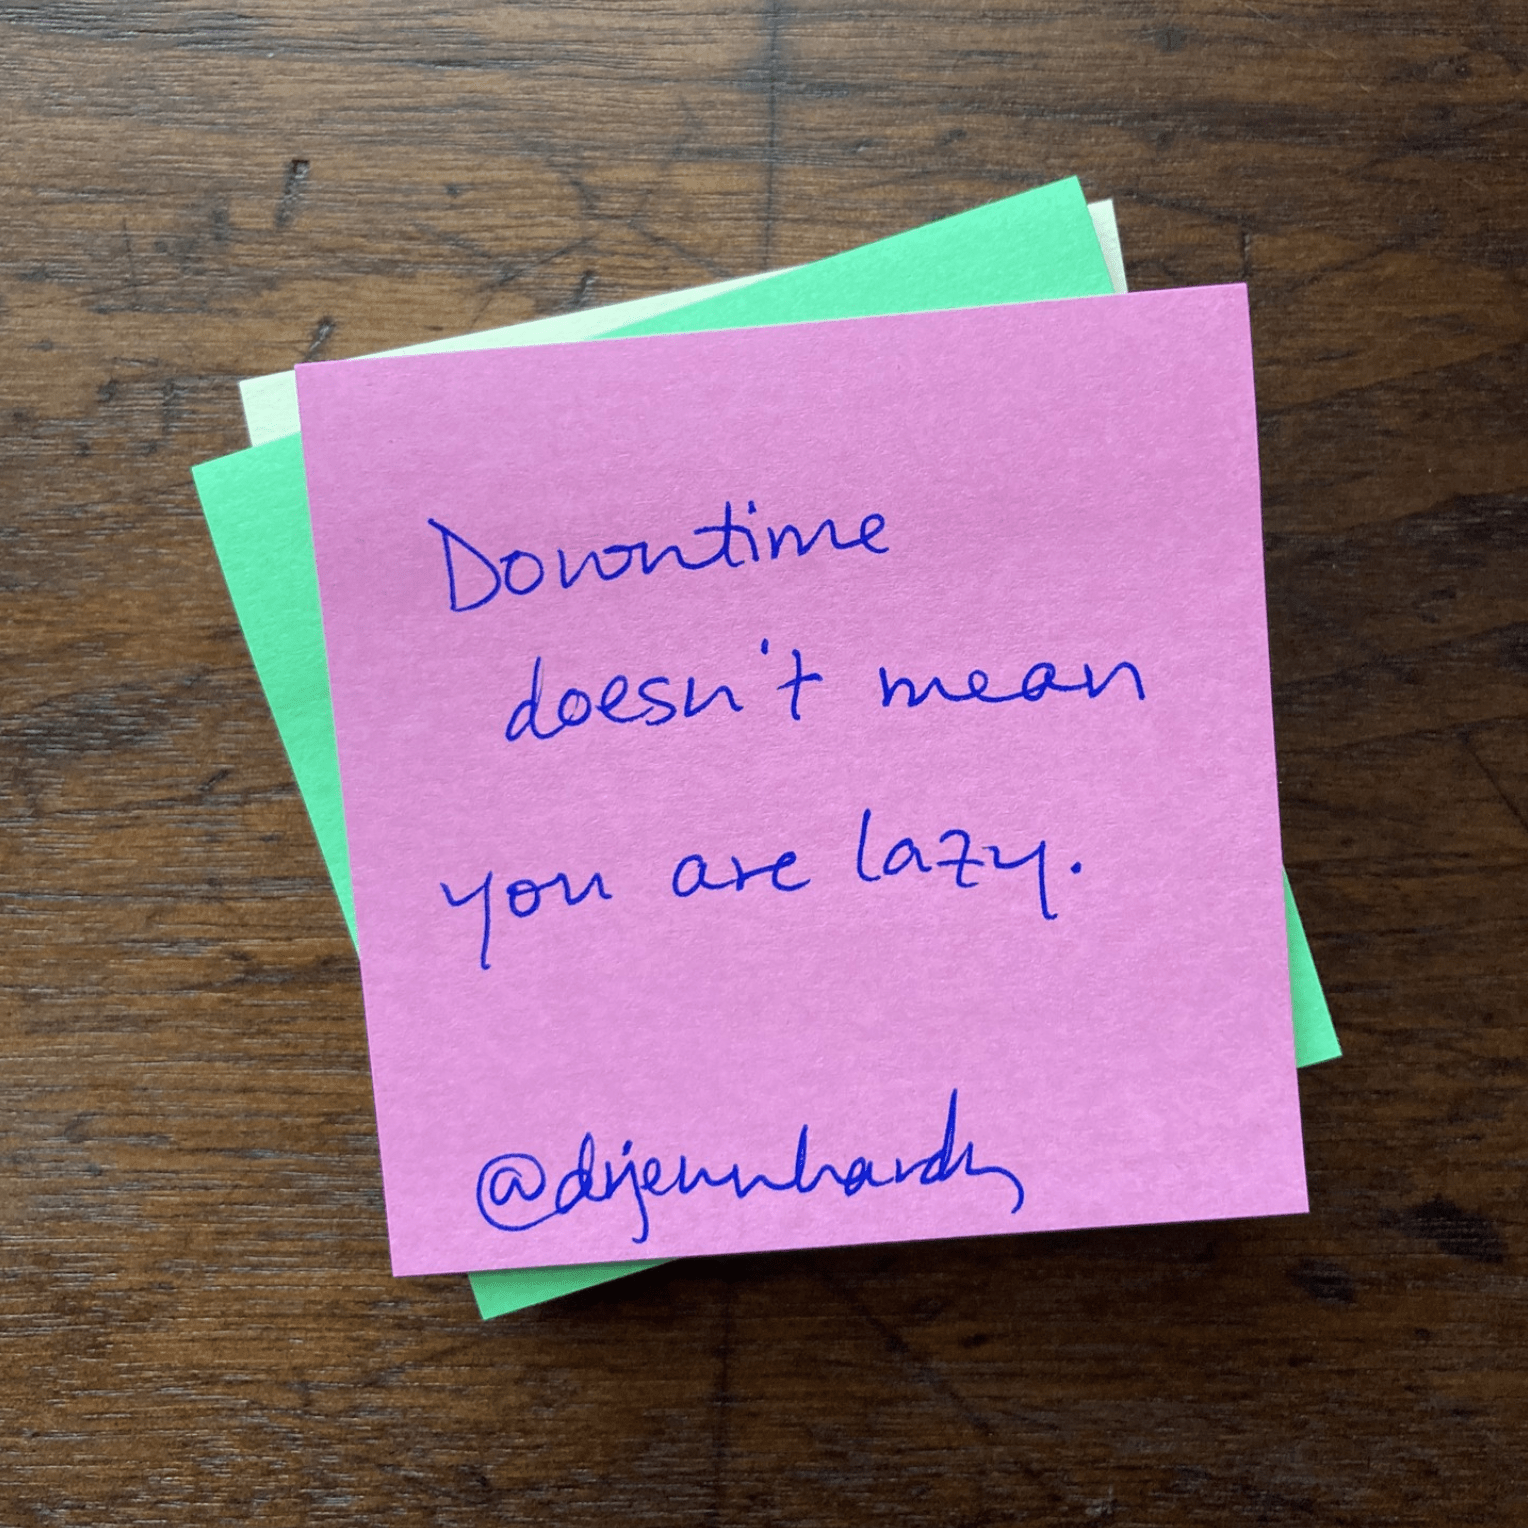 Downtime
doesn't mean
you are lazy.
@drjennhardy